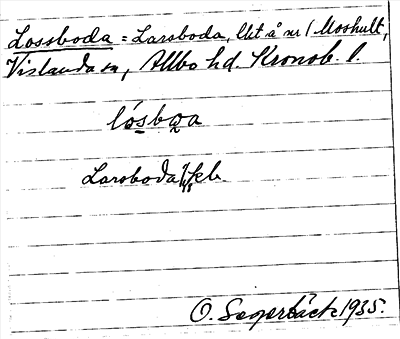 Lossboda = Larsboda, lht å nr 1 Moshult,
Vislanda sn, Allbo hd. Kronob. l.
lósboa
Larsboda
O. Sagerbäck 1935.